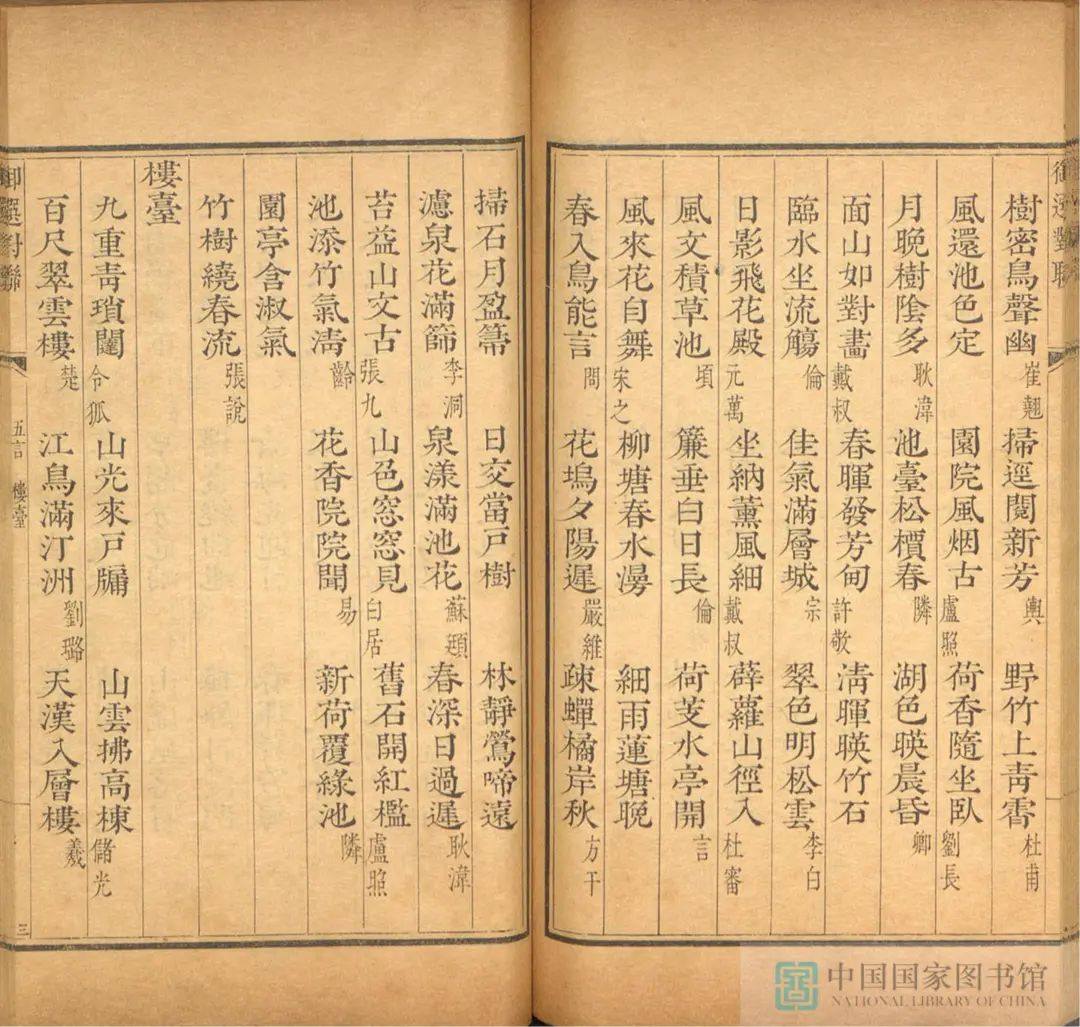 御選對聯
樹密鳥聲幽 崔翹 掃逕閱新芳 輿 野竹上青霄 杜甫
風還池色定 園院風烟古 盧照 荷香隨坐臥 劉長
月晚樹陰多 耿湋 池臺松檟春 隣 湖色暎晨昏 卿
面山如對畵 戴叔 春暉發芳甸 許敬 清暉暎竹石
臨水坐流觴 倫 佳氣滿層城 宗 翠色明松雲 李白
日影飛花殿 元萬 坐納薰風細 戴叔 薜蘿山徑入 杜審
風文積草池 頃 簾垂白日長 倫 荷芰水亭開 言
風來花自舞 宋之 柳塘春水漫 細雨蓮塘晚
春入鳥能言 問 花塢夕陽遲 嚴維 疎蟬橘岸秋 方干
掃石月盈箒 日交當戸樹 林靜鶯啼遠
濾泉花滿篩 李洞 泉漾滿池花 蘇頲 春深日過遲 耿湋
苔益山文古 張九 山色窓窓見 白居 舊石開紅檻 盧照
池添竹氣清 齡 花香院院聞 易 新荷覆綠池 隣
園亭含淑氣
竹樹繞春流 張說
樓臺
九重青瑣闥 令狐 山光來戸牖 山雲拂高棟 儲光
百尺翠雲樓 楚 江鳥滿汀洲 劉璐 天漢入層樓 羲
御選對聯 五言 樓臺 三
中国国家图书馆
NATIONAL LIBRARY OF CHINA